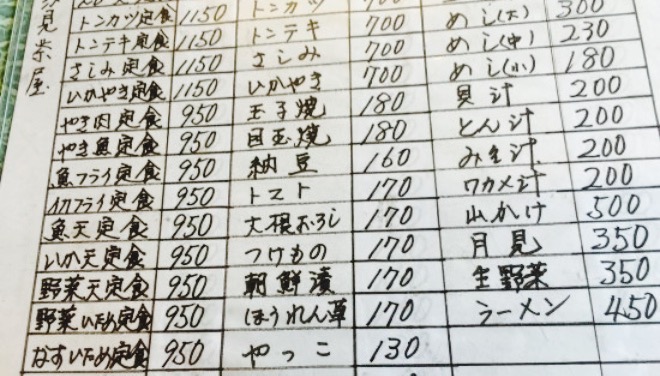 見茶屋
トンカツ定食 1150 トンカツ
トンテキ定食 1150 トンテキ 700 めし(大) 300
さしみ定食 1150 さしみ 700 めし(中) 230
いかやき定食 1150 いかやき 700 めし(小) 180
やき肉定食 950 玉子焼 180 貝汁 200
やき魚定食 950 目玉焼 180 とん汁 200
魚フライ定食 950 納豆 160 みそ汁 200
イカフライ定食 950 トマト 170 ワカメ汁 200
魚天定食 950 大根おろし 170 山かけ 500
いか天定食 950 つけもの 170 月見 350
野菜天定食 950 朝鮮漬 170 生野菜 350
野菜いため定食 950 ほうれん草 170 ラーメン 450
なすいため定食 950 やっこ 130